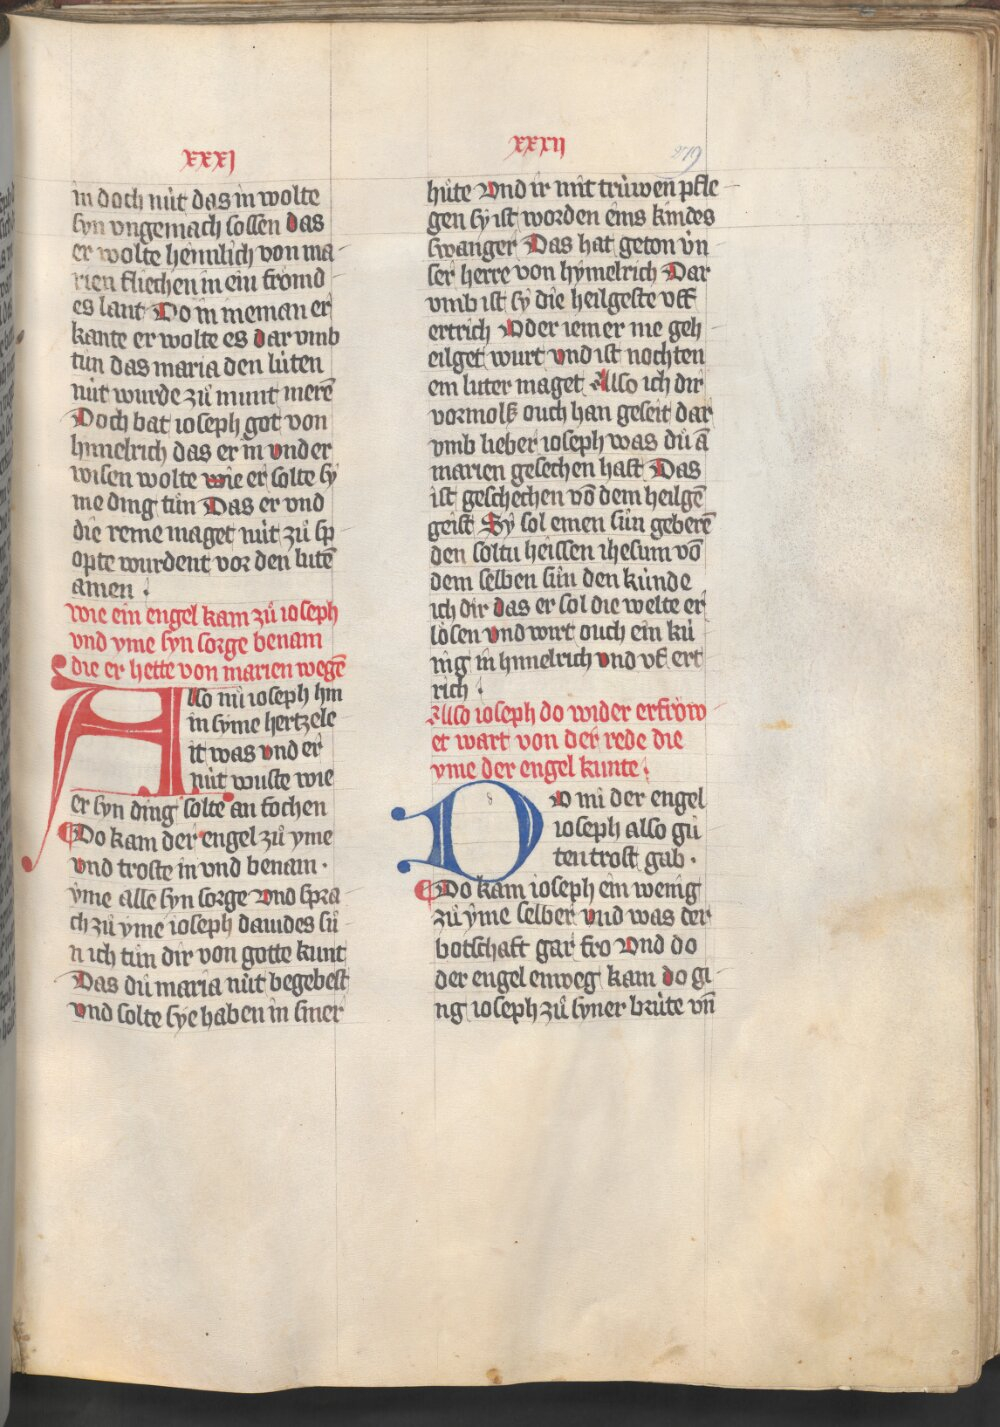 xxxi
in doch nüt das in wolte
syn vngemach lossen das
er wolte heimlich von ma-
rien fliechen in ein frömd
es lant Do in nieman er
kante er wolte es dar vmb
tůn das maria den lüten
nüt wurde zů munt mere̅
Doch bat ioseph got von
himelrich das er in vnder
wisen wolte wie er solte sy
ne ding tůn Das er vnd
die reine maget nüt zů sp
opte wurdent vor den lute̅
amen .
wie ein engel kam zů ioseph
vnd yme syn sorge benam
die er hette von marien wege̅
Also nů ioseph hin
in syme hertzele
it was vnd er
nüt wuste wie
er syn ding solte an fochen
Do kam der engel zů yme
vnd troste in vnd benam.
yme alle syn sorge Vnd spra-
ch zů yme ioseph dauides sů
n ich tůn dir von gotte kunt
Das dü maria nüt begebest
vnd solte sye haben in siner
xxxii
279
hůte Vnd ir mit trüwen pfle-
gen sy ist worden eins kindes
swanger Das hat geton vn
ser herre von hymelrich Dar
vmb ist sy die heilgeste vff
ertrich Oder iemer me geh
eilget wurt vnd ist nochten
ein luter maget Also ich dir
vormols ouch han geseit dar
vmb lieber ioseph was dů a̅
marien gesechen hast Das
ist geschechen vo̅ dem heilge̅
geist Sy sol einen sün gebere̅
den soltu heissen ihesum vo̅
dem selben sün den künde
ich dir das er sol die welte er
lösen vnd wirt ouch ein kü
nig in himelrich vnd vf ert
rich .
Also ioseph do wider erfröw-
et wart von der rede die
yme der engel kunte.
Do nů der engel
ioseph also gů
ten trost gab.
Do kam ioseph ein wenig
zů yme selber vnd was der
botschaft gar fro Vnd do
der engel enweg kam do gi-
ng ioseph zů syner brüte vn̅